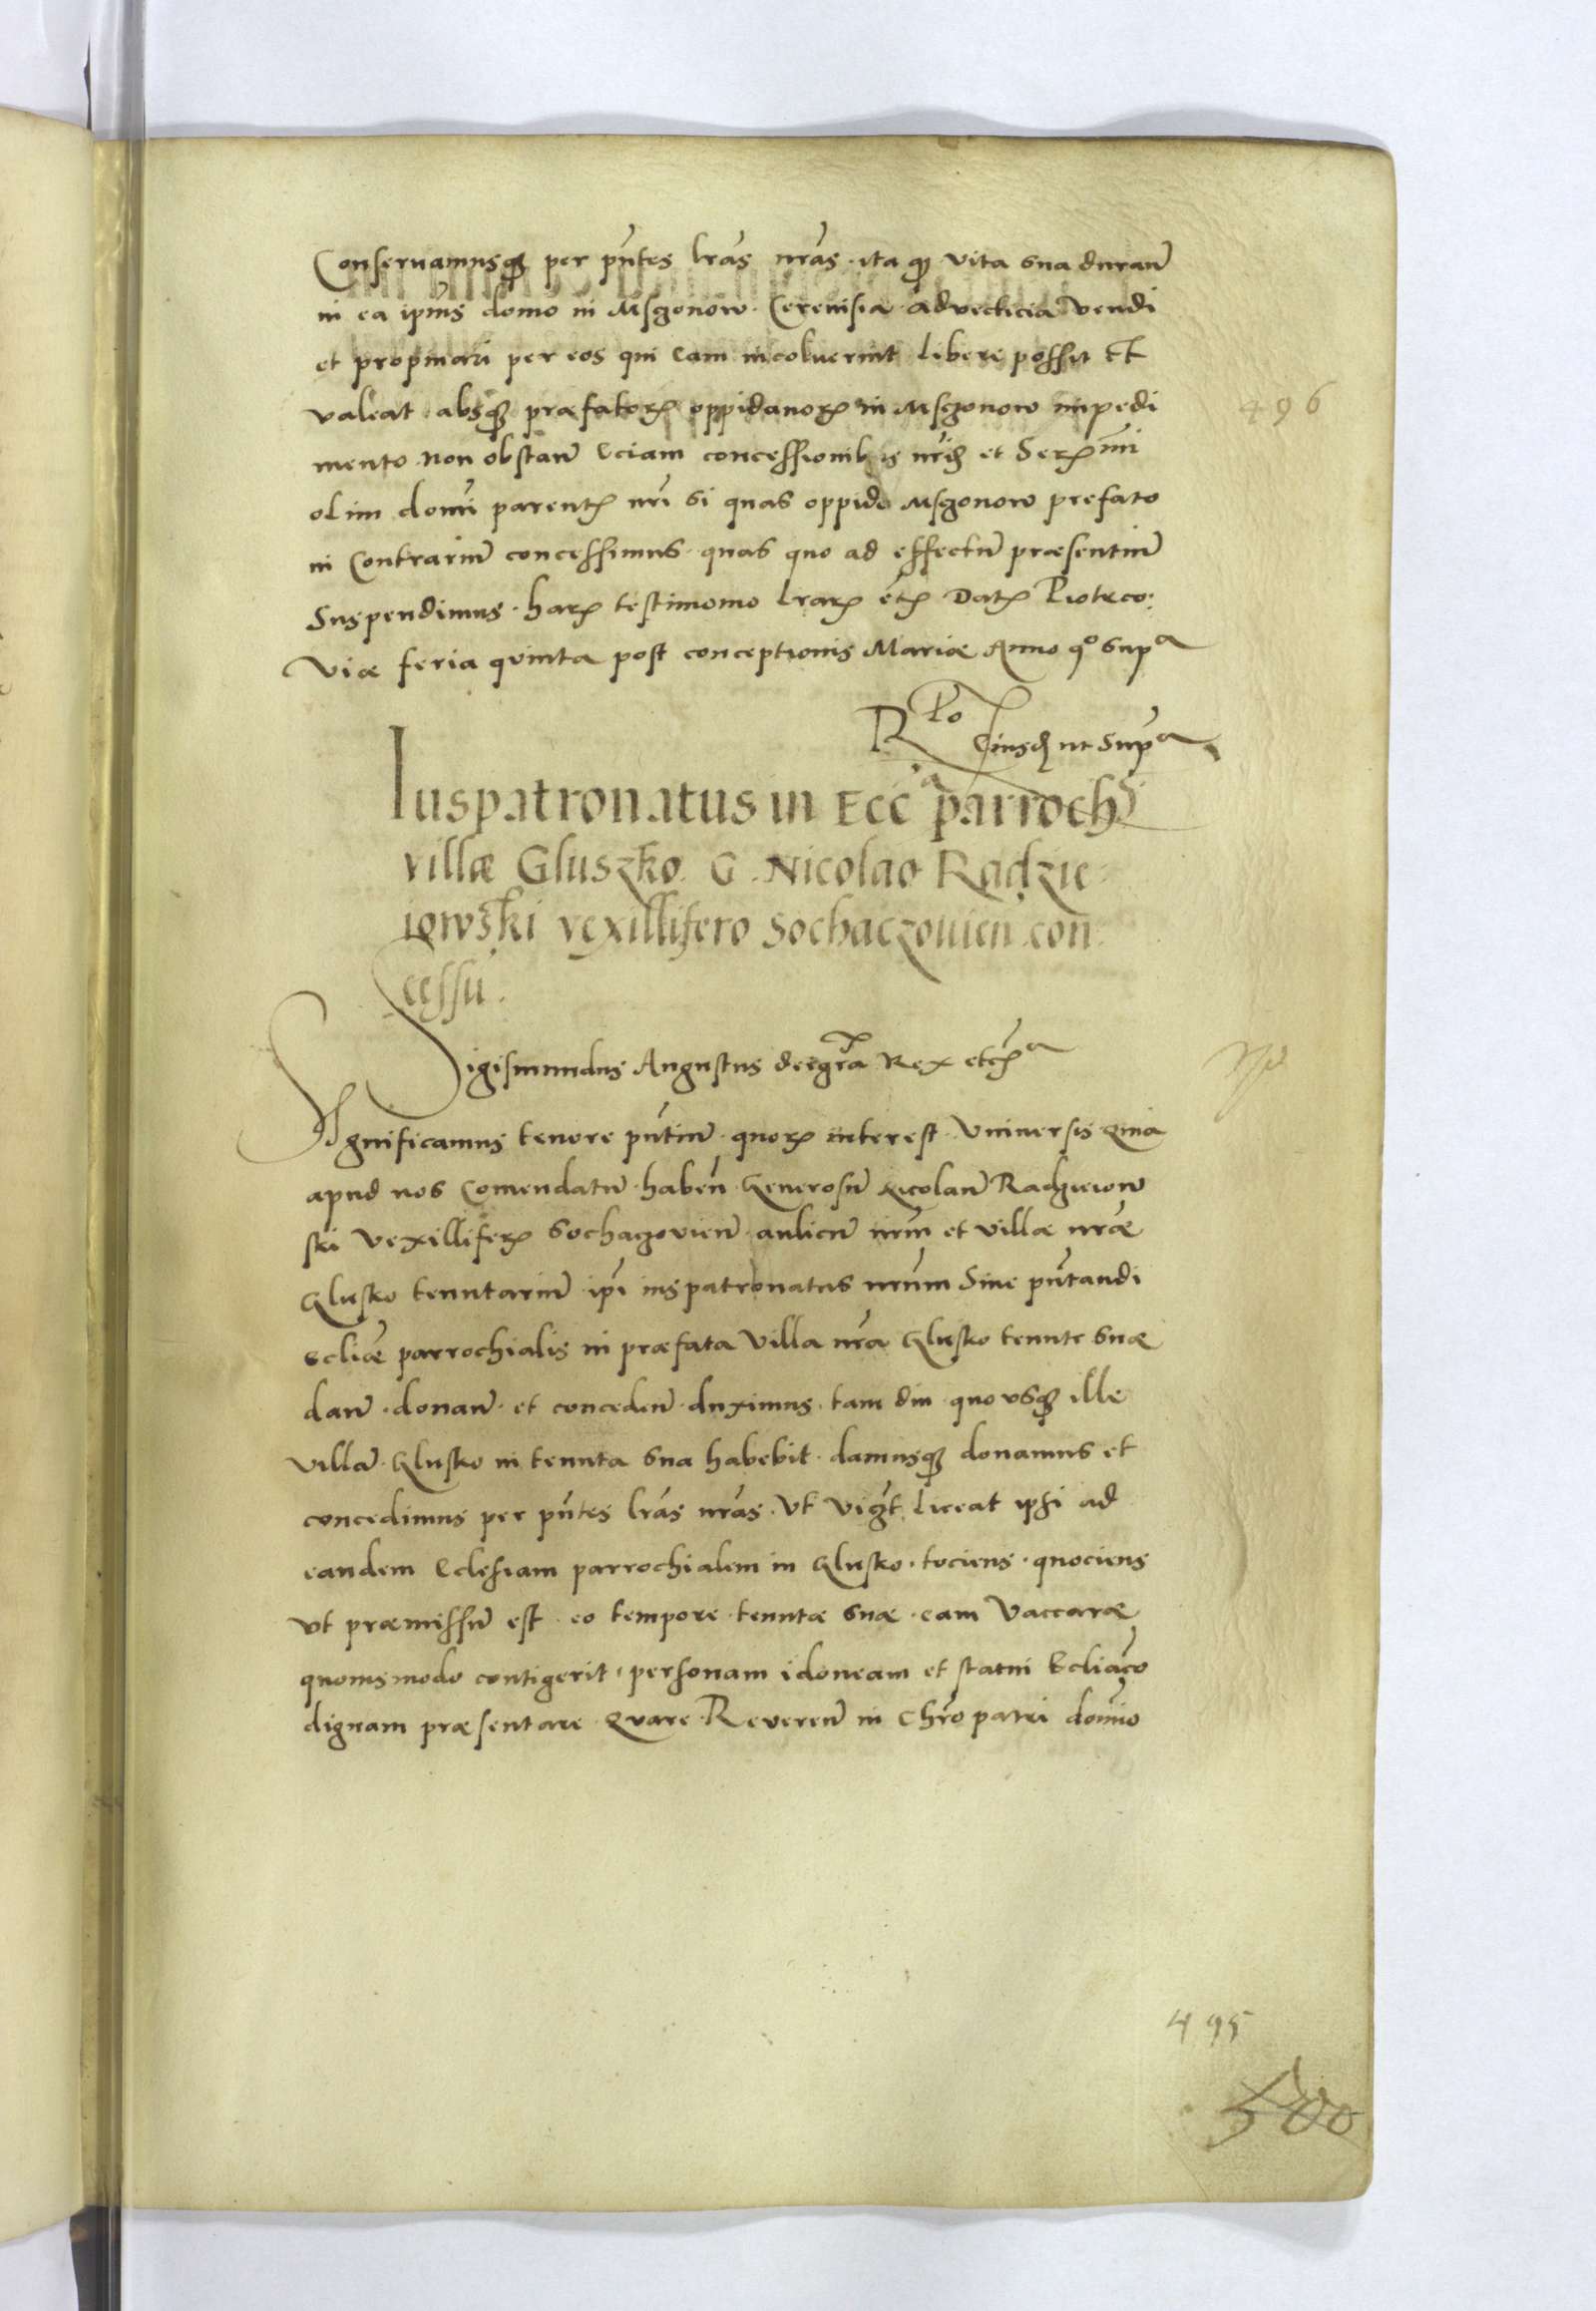 Conservamusq₃ per pñtes lras nras. ita q₃ vita sua durañ
in ea ipius domo in Msgonow. Cerevisia advecticia vendi
et propinari per eos qui eam incoluerint libere possit et
valeat absq₃ praefatorꝝ oppidanorꝝ in Msgonow impedi
mento non obstañ eciam concessionibus nris et Serꝝmi
olim domi parentꝭ nri si quas oppido Msgonow prefato
in Contrariũ concessimus. quas quo ad effectũ praesentiũ
Suspendimus. harꝝ testimonio lrarꝝ etꝭ Datꝭ Piotrco:
viae feria quinta post conceptionis Mariae Anno qº supª
Rlo Eiusdꝫ ut supª
Iuspatronatus in Eccª parroch
villae Gluszko. G. Nicolao Radzie
iowski vexillifero Sochaczouien con
cessũ.
Sigismundus Augustus dei gra Rex etcꝭª
Significamus tenore pñtiũ. quorꝝ interest. Vniversis Quia
apud nos Comendatũ. habeñ Generosũ Nicolaũ Radzieiow
ski vexilliferꝝ Sochaczovieñ aulicũ nrm et villae nrae
Glusko tenutariũ. ipi iuspatronatus nrum Sive pñtandi
ecliae parrochialis in praefata villa nra Glusko tenute suae
dañ. donañ. et concedeñ. duximus. tam diu quousq₃ ille
villã Glusko in tenuta sua habebit. damusq₃ donamus et
concedimus per pñtes lras nras. Vt vigt liceat ipsi ad
eandem Eclesiam parrochialem in Glusko. tociens. quociens
vt praemissũ est. eo tempore tenutae suae. eam vaccare
quovismodo contigerit, personam idoneam et statui Ecliaco
dignam praesentare Quare Revereñ in Chro patri domio
496
495
500